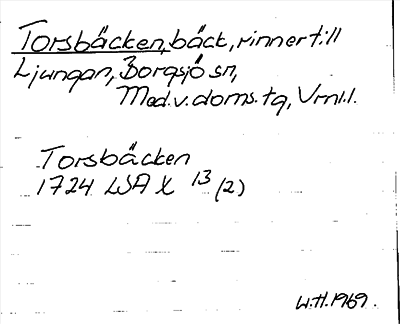 Torsbäcken, bäck, rinner till
Ljungan, Borgsjö sn,
Med.v.doms.tg, Vrnl.l.
Torsbäcken
1724 LSA X 13 (2)
W.H. 1969.